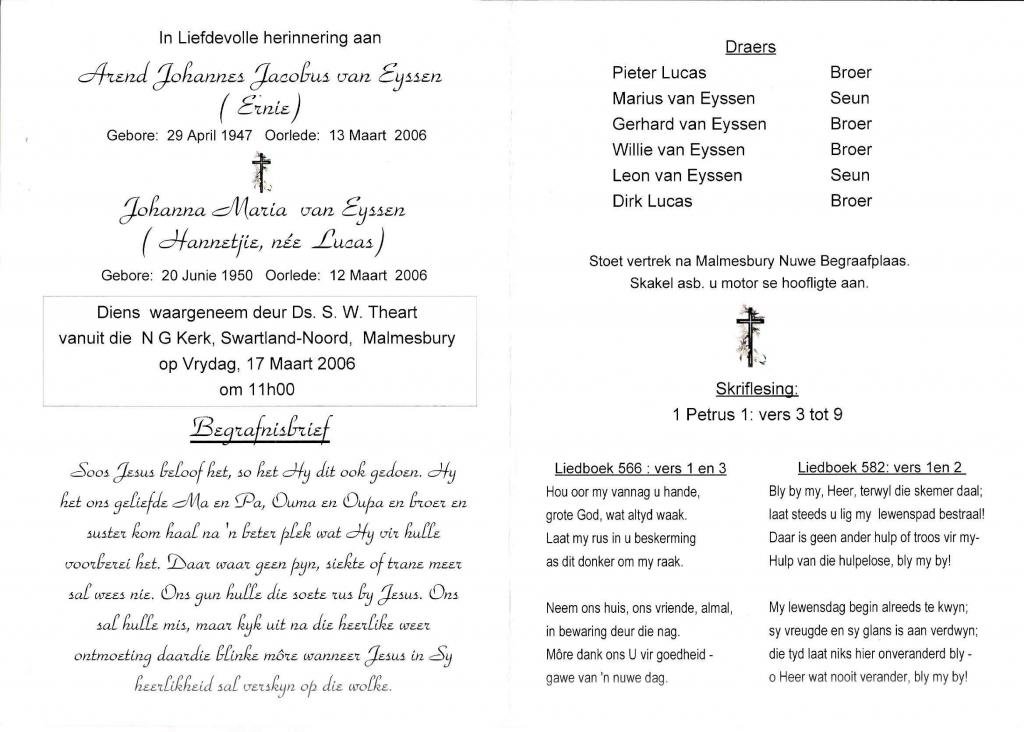 In Liefdevolle herinnering aan
Arend Johannes Jacobus van Eyssen
( Ernie )
Gebore: 29 April 1947 Oorlede: 13 Maart 2006
Johanna Maria van Eyssen
( Hannetjie, née Lucas )
Gebore: 20 Junie 1950 Oorlede: 12 Maart 2006
Diens waargeneem deur Ds. S. W. Theart
vanuit die N G Kerk, Swartland-Noord, Malmesbury
op Vrydag, 17 Maart 2006
om 11h00
Begrafnisbrief
Soos Jesus beloof het, so het Hy dit ook gedoen. Hy
het ons geliefde Ma en Pa, Ouma en Oupa en broer en
suster kom haal na 'n beter plek wat Hy vir hulle
voorberei het. Daar waar geen pyn, siekte of trane meer
sal wees nie. Ons gun hulle die soete rus by Jesus. Ons
sal hulle mis, maar kyk uit na die heerlike weer
ontmoeting daardie blinke môre wanneer Jesus in Sy
heerlikheid sal verskyn op die wolke.
Draers
Pieter Lucas Broer
Marius van Eyssen Seun
Gerhard van Eyssen Broer
Willie van Eyssen Broer
Leon van Eyssen Seun
Dirk Lucas Broer
Stoet vertrek na Malmesbury Nuwe Begraafplaas.
Skakel asb. u motor se hoofligte aan.
Skriflesing:
1 Petrus 1: vers 3 tot 9
Liedboek 566 : vers 1 en 3
Hou oor my vannag u hande,
grote God, wat altyd waak.
Laat my rus in u beskerming
as dit donker om my raak.
Neem ons huis, ons vriende, almal,
in bewaring deur die nag.
Môre dank ons U vir goedheid -
gawe van 'n nuwe dag.
Liedboek 582: vers 1en 2
Bly by my, Heer, terwyl die skemer daal;
laat steeds u lig my lewenspad bestraal!
Daar is geen ander hulp of troos vir my-
Hulp van die hulpelose, bly my by!
My lewensdag begin alreeds te kwyn;
sy vreugde en sy glans is aan verdwyn;
die tyd laat niks hier onveranderd bly -
o Heer wat nooit verander, bly my by!